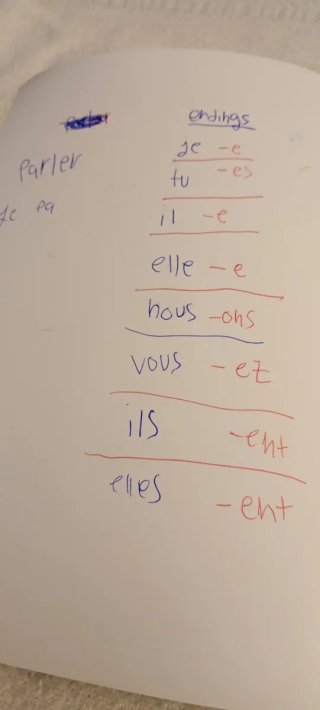 endings
parler
je pa
je -e
tu -es
il -e
elle -e
nous -ons
vous -ez
ils -ent
elles -ent